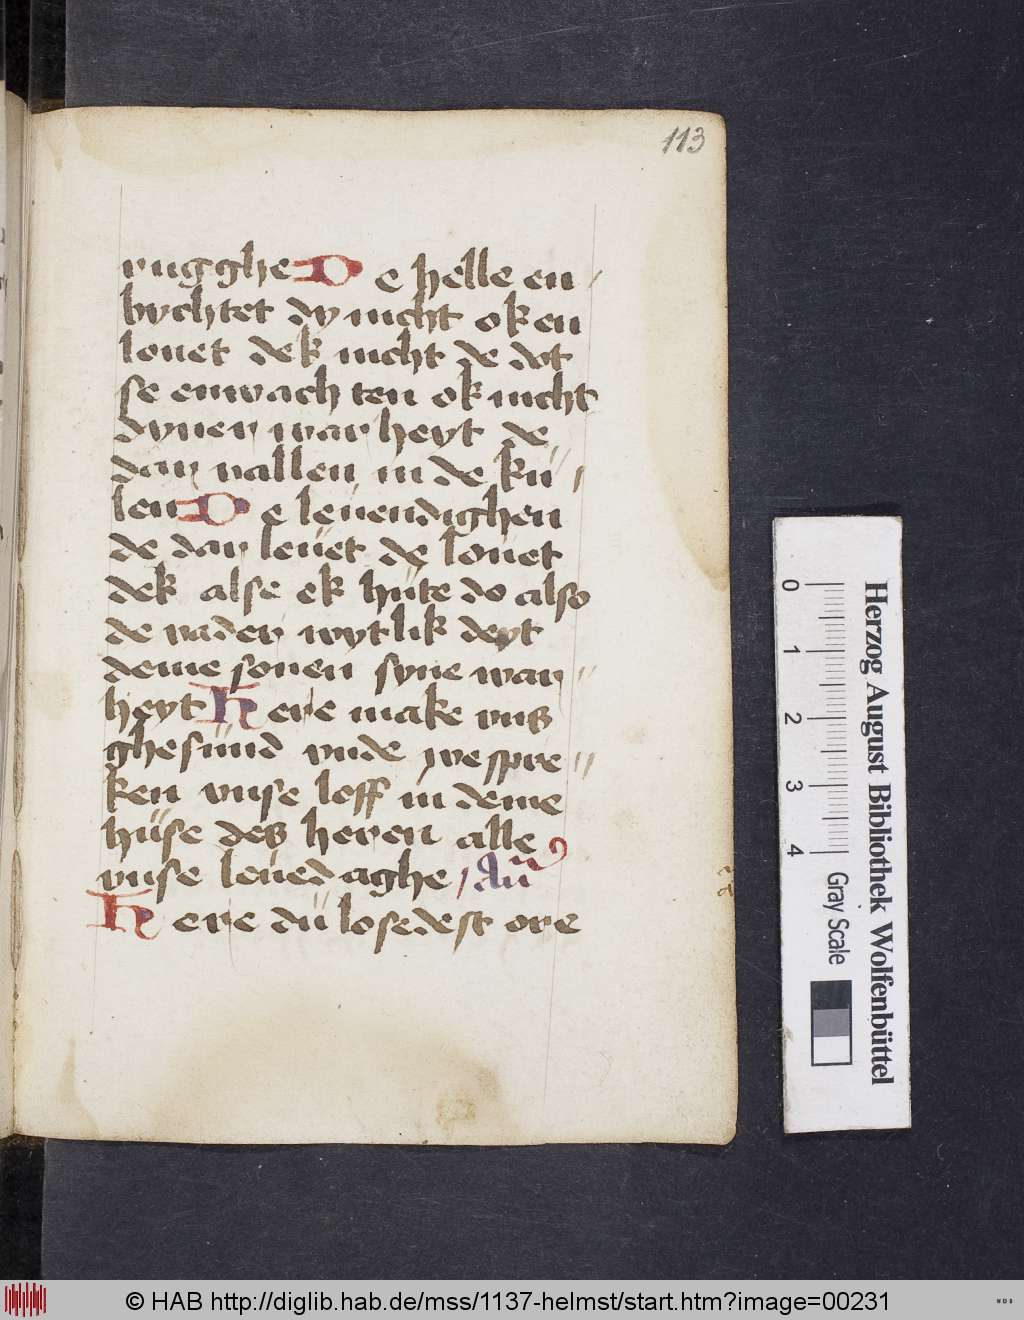 113
rugghe De helle en
bychtet dy nicht ok en
louet dek nicht de dot
se enwachten ok nicht
dyner warheyt de
dar vallen in de kü
len De leuendighen
de dar leuet de louet
dek alse ek hüte do also
de vader wytlik deyt
deme sonen syne war
heyt Here make uns
ghesünd vnde we spre
ken vnse loff in deme
hüse des heren alle
vnse leuedaghe Añ
Here dü losedest ore
0 1 2 3 4
Gray Scale
Herzog August Bibliothek Wolfenbüttel
© HAB http://diglib.hab.de/mss/1137-helmst/start.htm?image=00231